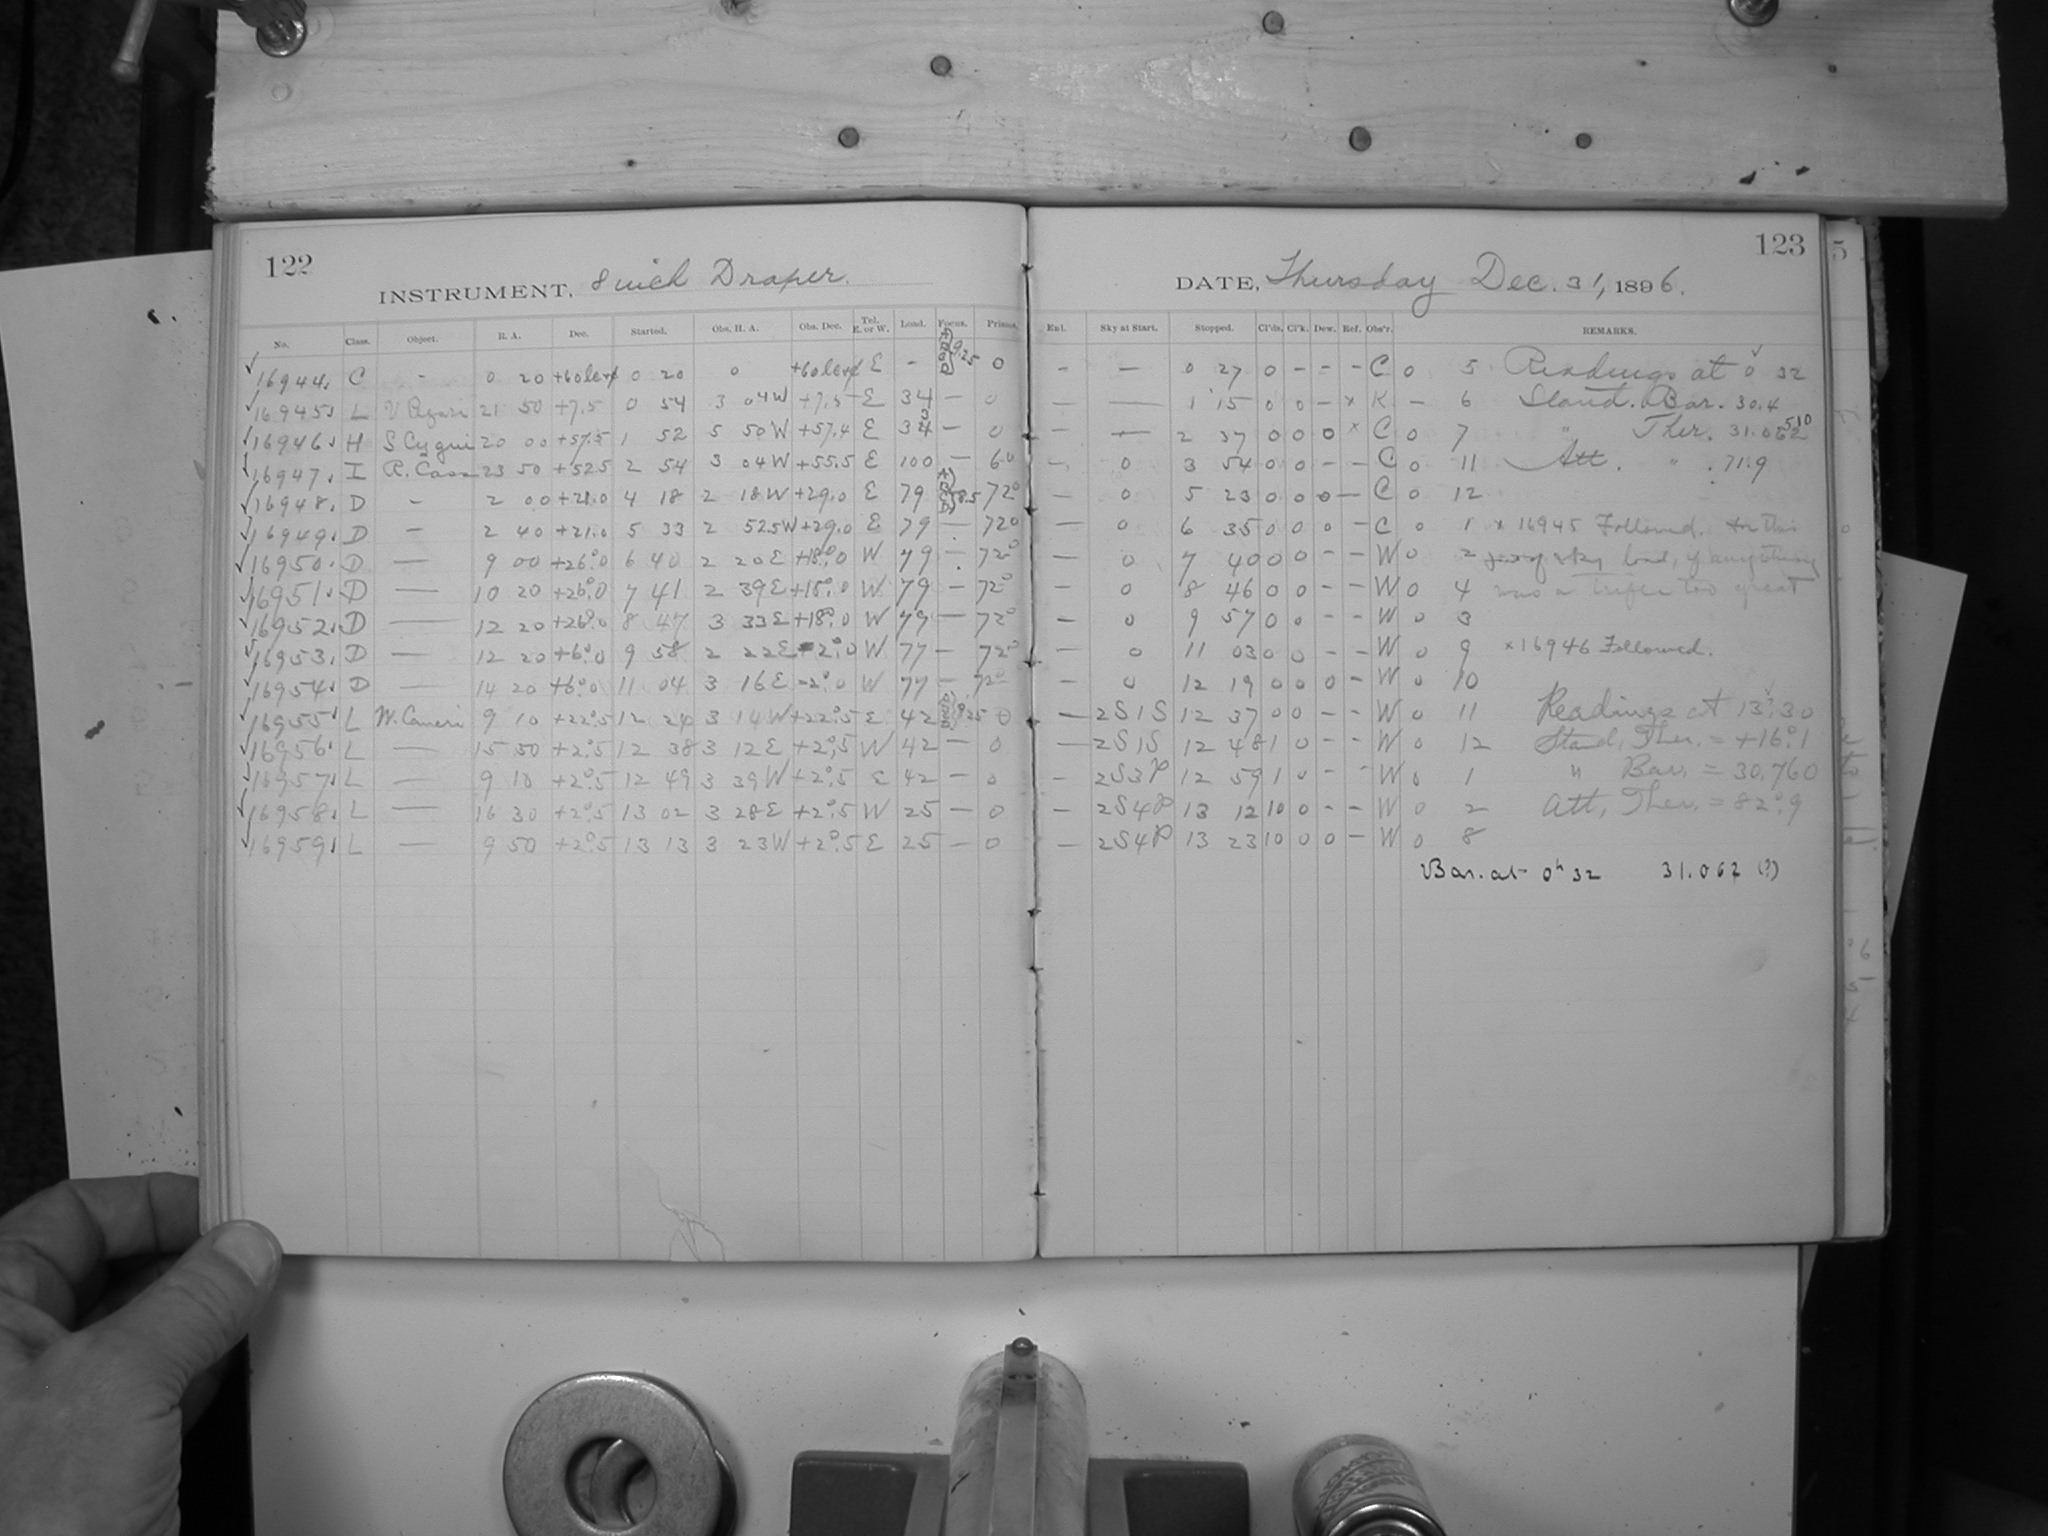 122
INSTRUMENT, 8 inch Draper.
No. Class. Object. R. A. Dec. Started. Obs. H. A. Obs. Dec. Tel. E. or W. Load. Focus. Prisms.
16944. C - 0 20 0 20 0 E - 9.25 0
16945. L 21 50 +7.5 0 54 3 04W +7.5 E 34 - 0
16946. H S Cygni 20 00 +57.5 1 52 5 50W +57.4 E 34 - 0
16947. I R. Cass 23 50 +52.5 2 54 3 04W +55.5 E 100 - 60
16948. D - 2 00 +21.0 4 18 2 18W +29.0 E 79 8.5 72°
16949. D - 2 40 +21.0 5 33 2 52.5W +29.0 E 79 - 72°
16950. D — 9 00 +26°.0 6 40 2 20E +18°.0 W 79 - 72°
16951. D — 10 20 +26°.0 7 41 2 39E +18°.0 W 79 - 72°
16952. D — 12 20 +26°.0 8 47 3 33E +18°.0 W 79 - 72°
16953. D — 12 20 +6°.0 9 58 2 22E -2°.0 W 77 - 72°
16954. D — 14 20 +6°.0 11 04 3 16E -2°.0 W 77 - 72°
16955. L W. Cancri 9 10 +22°.5 12 24 3 14W +22°.5 E 42 9.25 0
16956. L — 15 50 +2°.5 12 38 3 12E +2°.5 W 42 - 0
16957. L — 9 10 +2°.5 12 49 3 39W +2°.5 E 42 - 0
16958. L — 16 30 +2°.5 13 02 3 28E +2°.5 W 25 - 0
16959. L — 9 50 +2°.5 13 13 3 23W +2°.5 E 25 - 0
123
DATE, Thursday Dec. 31, 1896.
Enl. Sky at Start. Stopped. Cl'ds. Cl'k. Dew. Ref. Obs'r. REMARKS.
- - 0 27 0 - - - C 0 5 Readings at 0 32
- — 1 15 0 0 - x K - 6 Stand. Bar. 30.4
- — 2 37 0 0 0 x C 0 7 " Ther. 31.062 510
- 0 3 54 0 0 - - C 0 11 Att. " 71.9
- 0 5 23 0 0 0 - C 0 12
- 0 6 35 0 0 0 - C 0 1 x 16945 Followed.
- 0 7 40 0 0 - - W 0 2 load, if anything
- 0 8 46 0 0 - - W 0 4 was a trifle too great
- 0 9 57 0 0 - - W 0 3
- 0 11 03 0 0 - - W 0 9 x 16946 Followed.
- 0 12 19 0 0 0 - W 0 10
- 2S1S 12 37 0 0 - - W 0 11 Readings at 13 30
- 2S1S 12 48 1 0 - - W 0 12 Stand. Ther. = +16°.1
- 2S3P 12 59 1 0 - - W 0 1 " Bar. = 30.760
- 2S4P 13 12 10 0 - - W 0 2 Att. Ther. = 82°.9
- 2S4P 13 23 10 0 0 - W 0 8
Bar. at 0ʰ 32 31.062 (?)
5